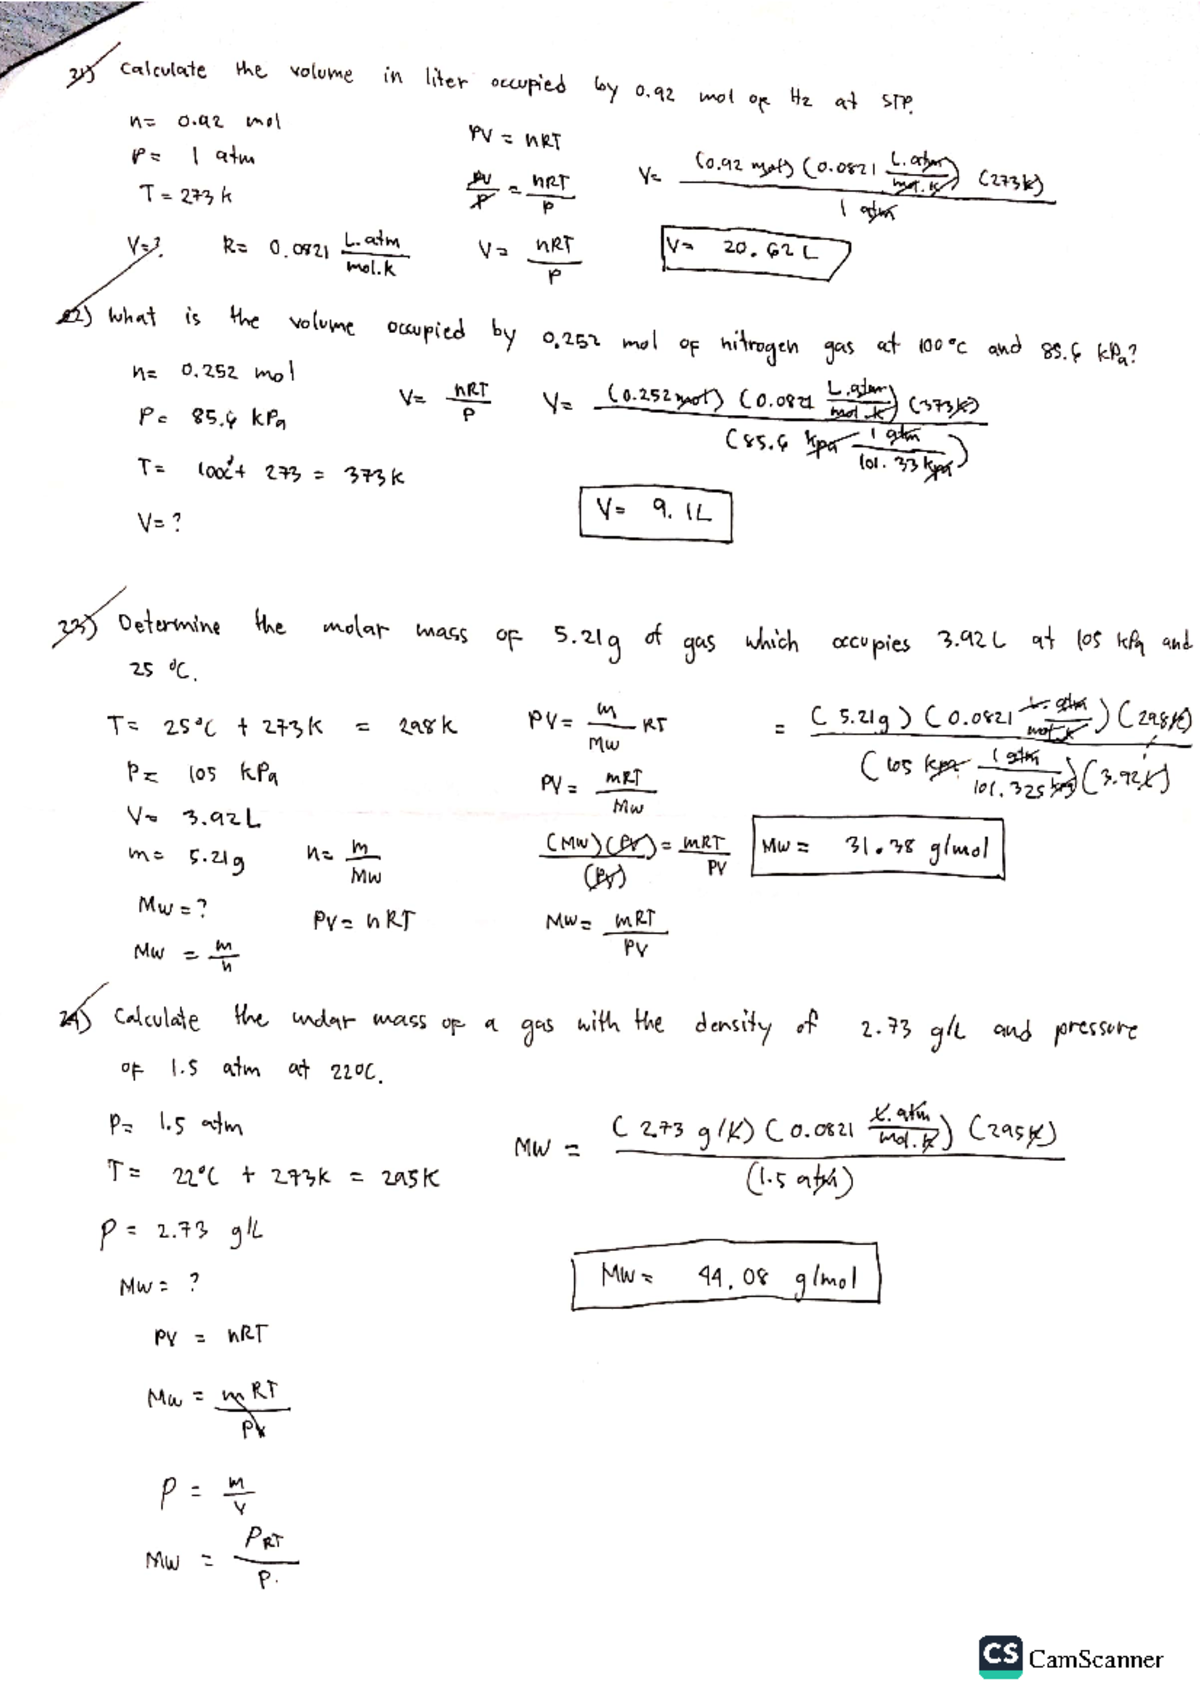 21) Calculate the volume in liter occupied by 0.92 mol of H2 at STP.
n= 0.92 mol
P= 1 atm
T= 273 k
V=?
R= 0.0821 L.atm / mol.k
PV = nRT
PV/P = nRT/P
V= nRT/P
V= (0.92 mol) (0.0821 L.atm/mol.k) (273k) / 1 atm
V= 20.62 L
22) What is the volume occupied by 0.252 mol of nitrogen gas at 100°C and 85.6 kPa?
n= 0.252 mol
P= 85.6 kPa
T= 100°+ 273 = 373k
V= ?
V= nRT/P
V= (0.252 mol) (0.0821 L.atm/mol.k) (373k) / (85.6 kpa 1 atm/101.33 kpa)
V= 9.1L
23) Determine the molar mass of 5.21g of gas which occupies 3.92L at 105 kPa and
25 °C.
T= 25°C + 273k = 298k
P= 105 kPa
V= 3.92L
m= 5.21g
Mw=?
Mw = m/n
n= m/Mw
PV= nRT
PV= m/Mw RT
PV= mRT/Mw
(Mw)(PV)/(PV) = mRT/PV
Mw= mRT/PV
= (5.21g) (0.0821 L.atm/mol.k) (298k) / (105 kpa 1 atm/101.325 kpa)(3.92L)
Mw= 31.38 g/mol
24) Calculate the molar mass of a gas with the density of 2.73 g/L and pressure
of 1.5 atm at 22°C.
P= 1.5 atm
T= 22°C + 273k = 295k
ρ = 2.73 g/L
Mw= ?
PV = nRT
Mw = mRT/PV
ρ = m/V
Mw = ρRT/P.
Mw = (2.73 g/L) (0.0821 L.atm/mol.k) (295k) / (1.5 atm)
Mw= 44.08 g/mol
CS CamScanner